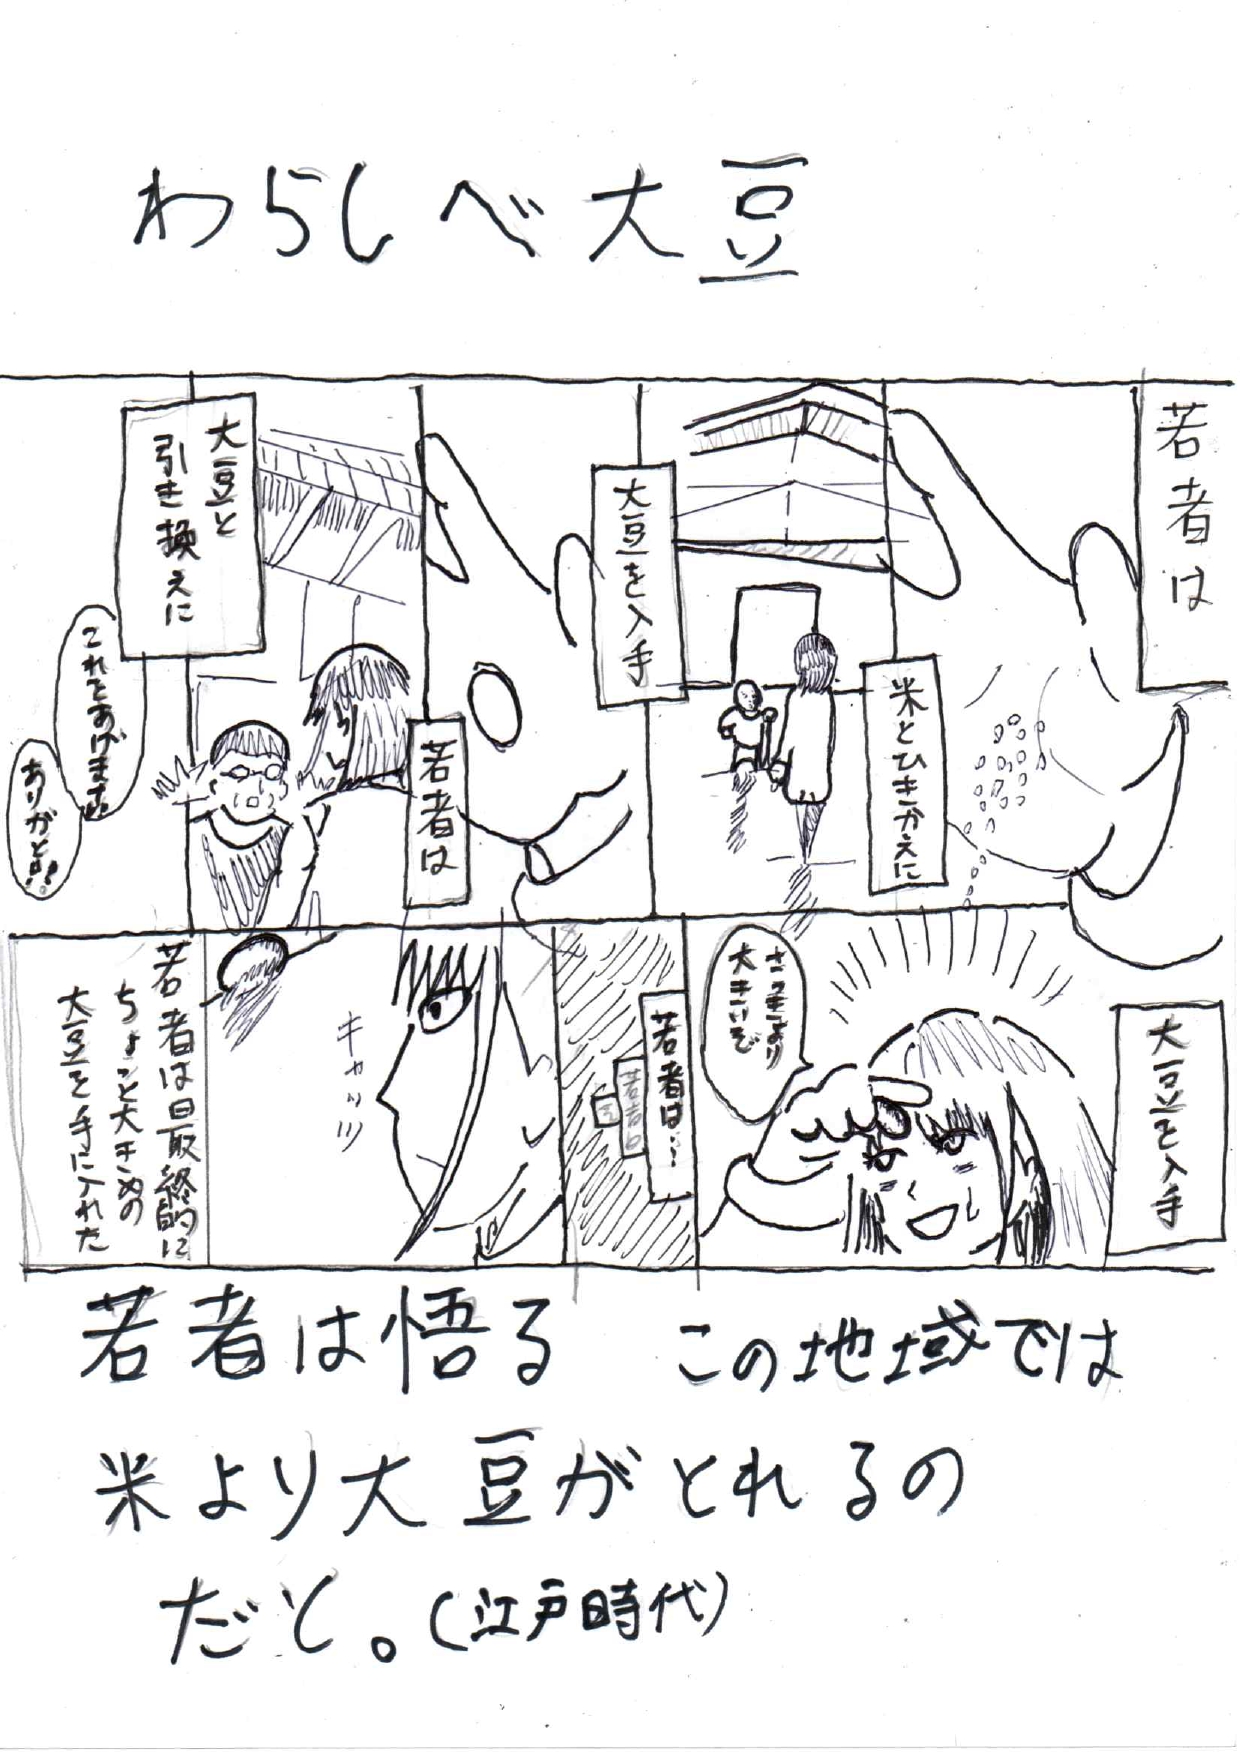 わらしべ大豆
若者は
米とひきかえに
大豆を入手
若者は
大豆と
引き換えに
これをあげました
ありがと!!
大豆を入手
さっきより
大きいぞ
若者は…
キャッ
若者は最終的に
ちょっと大きめの
大豆を手に入れた
若者は悟る この地域では
米より大豆がとれるの
だと。(江戸時代)